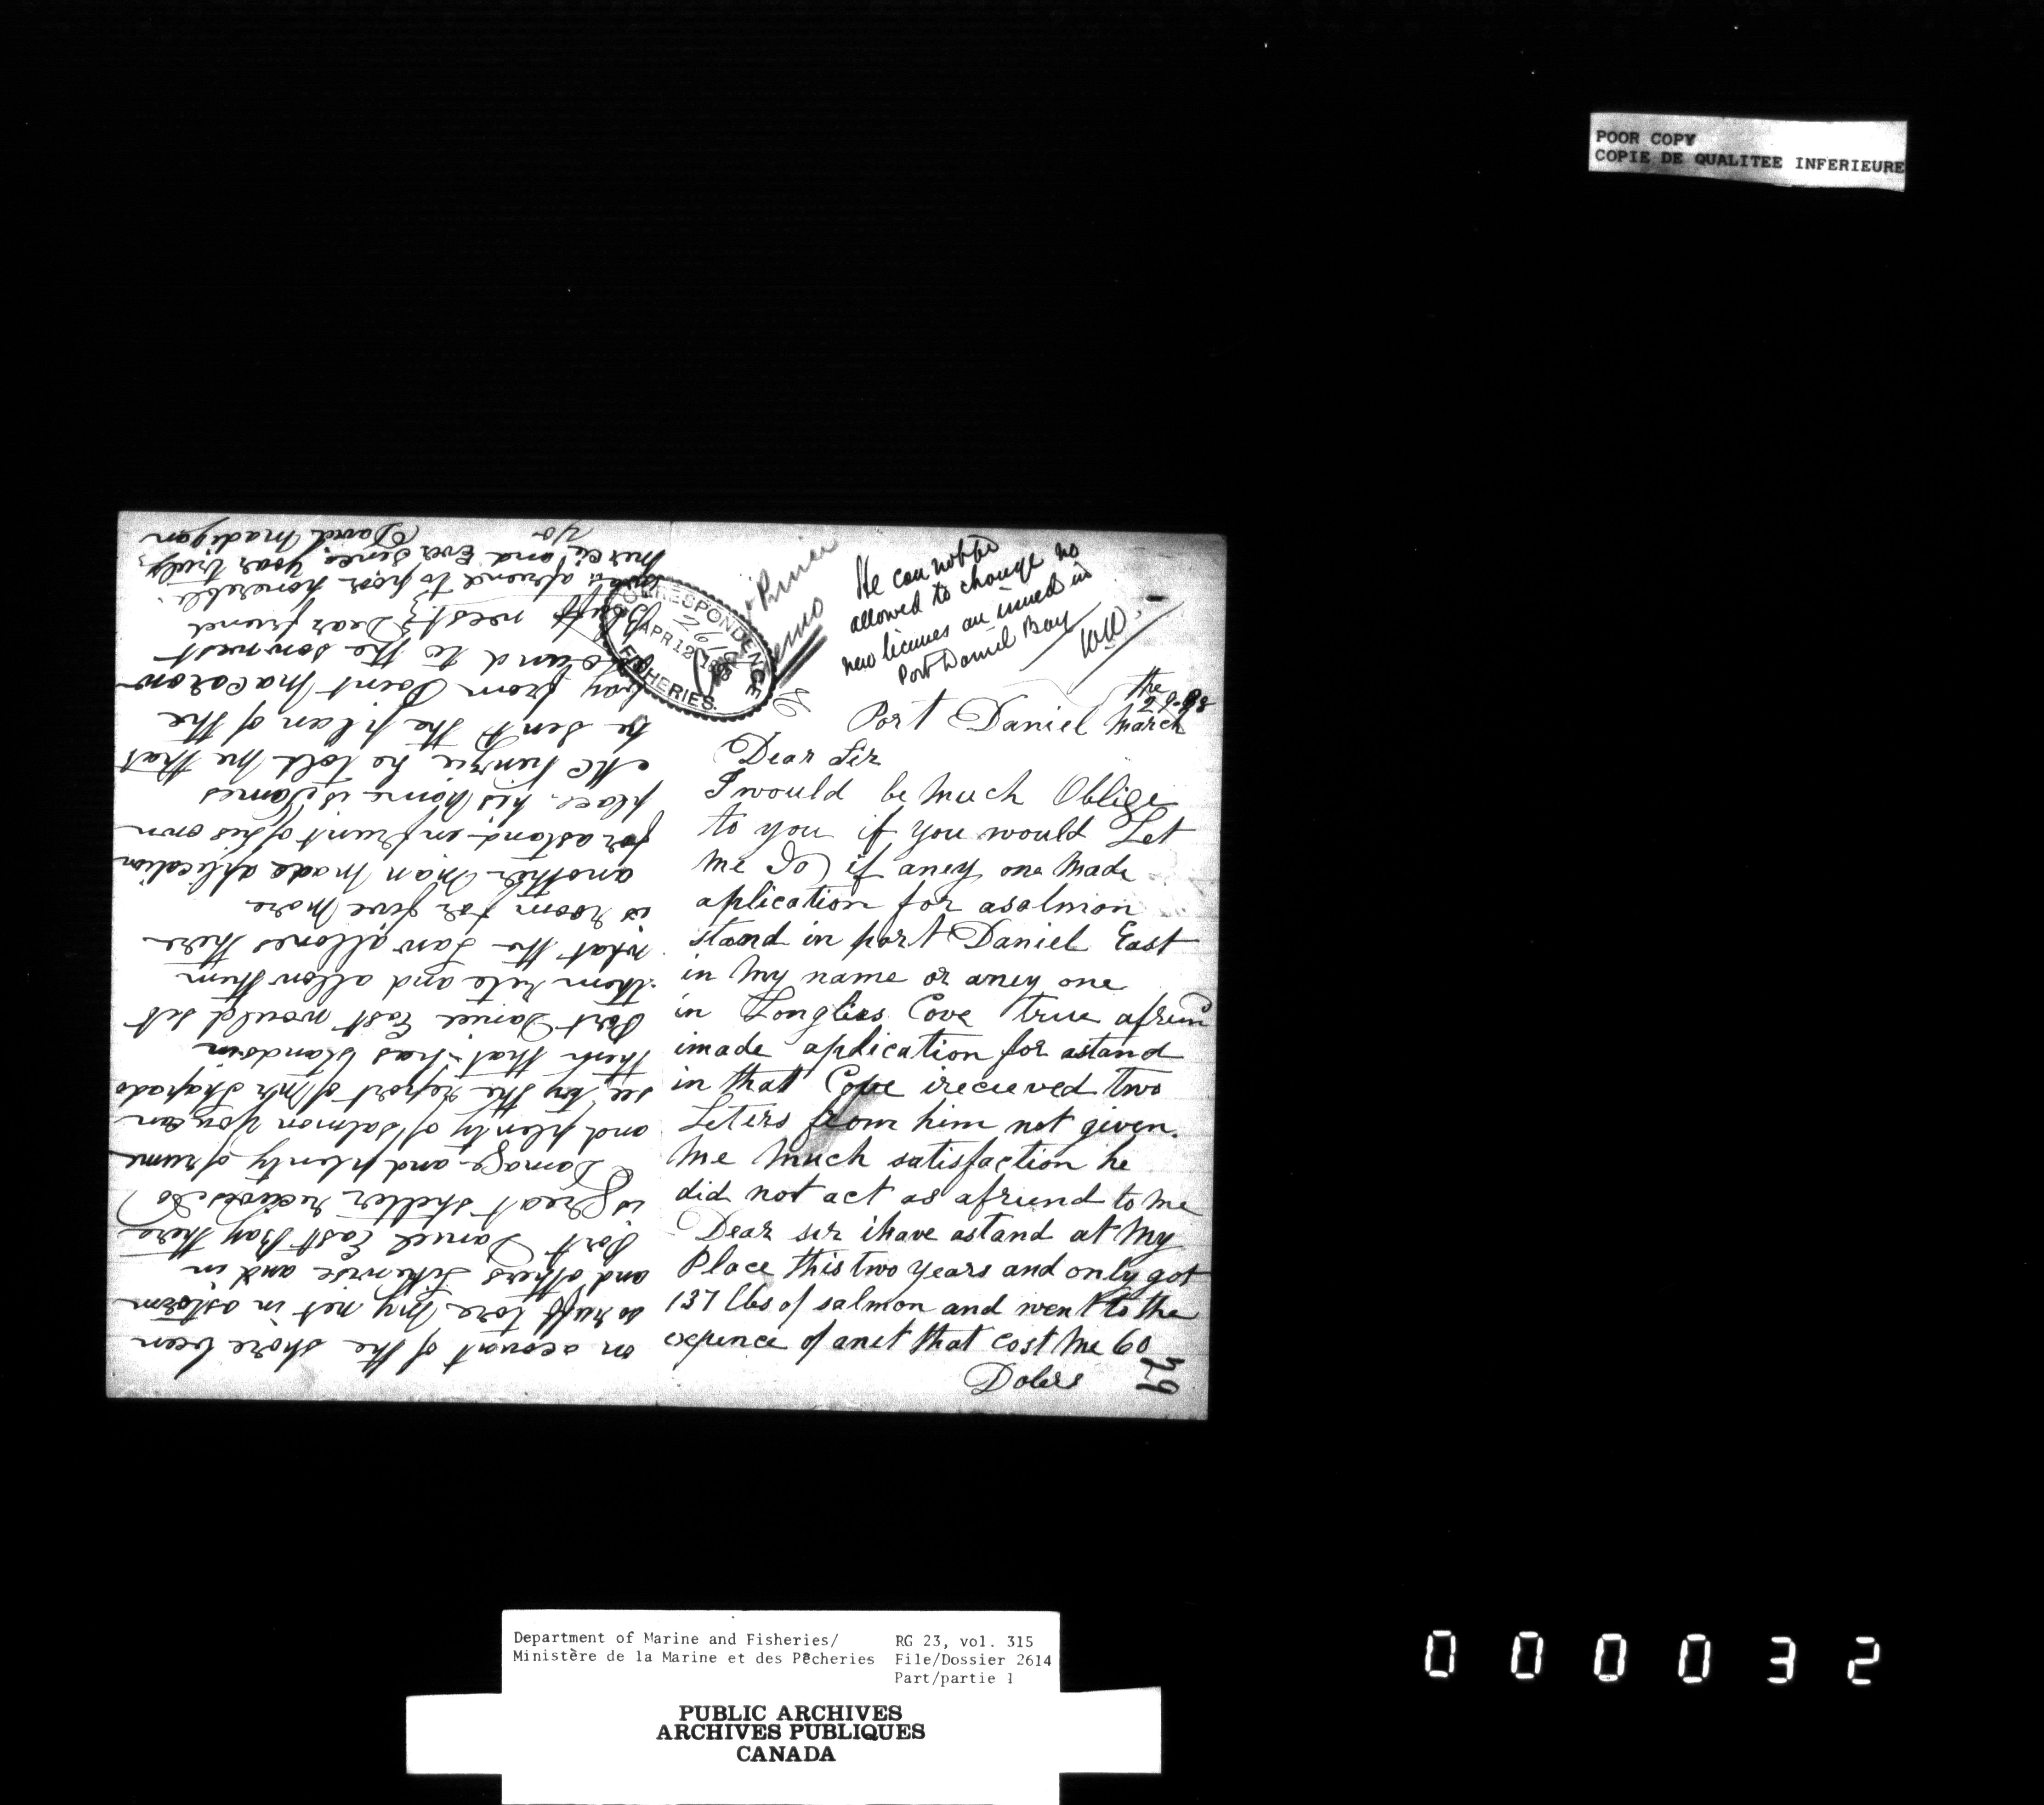 POOR COPY
COPIE DE QUALITEE INFERIEURE
He can not be
allowed to change no
new licenses are issued in
Port Daniel Bay
CORRESPONDENCE
APR 12 1898
FISHERIES.
Port Daniel March
the
29-98
Dear Sir
I would be much Oblige
to you if you would Let
me No if aney one made
aplication for asalmon
stand in port Daniel East
in My name or aney one
in Longlies Cove true afrind
imade aplication for astand
in that Cove irecieved two
Leters from him not given
me much satisfaction he
did not act as afriend to me
Dear sir ihave astand at My
Place this two years and only got
137 lbs of salmon and went to the
expence of anet that cost me 60
Dolers
29
on acount of the shore been
so ruff tore my net in astorm
and others Likewise and in
Port Daniel East Bay there
is Great shelter recives No
Damage and plenty of rume
and plenty of salmon you can
see by the report of Mr
them that has standsin
Port Daniel East would sit
them rite and allow them
what the Law allones there
is room for five more
another man made aplication
for astand infrunt of his own
place. his Name is James
McKenzie he told me that
he sent the plan of the
bay from Point Macarow
around to the sowwest
Bluff west Dear friend
afriend to poor honerable.
and Ever since your truly
David Madigan
Department of Marine and Fisheries/
Ministère de la Marine et des Pêcheries
RG 23, vol. 315
File/Dossier 2614
Part/partie 1
PUBLIC ARCHIVES
ARCHIVES PUBLIQUES
CANADA
000032